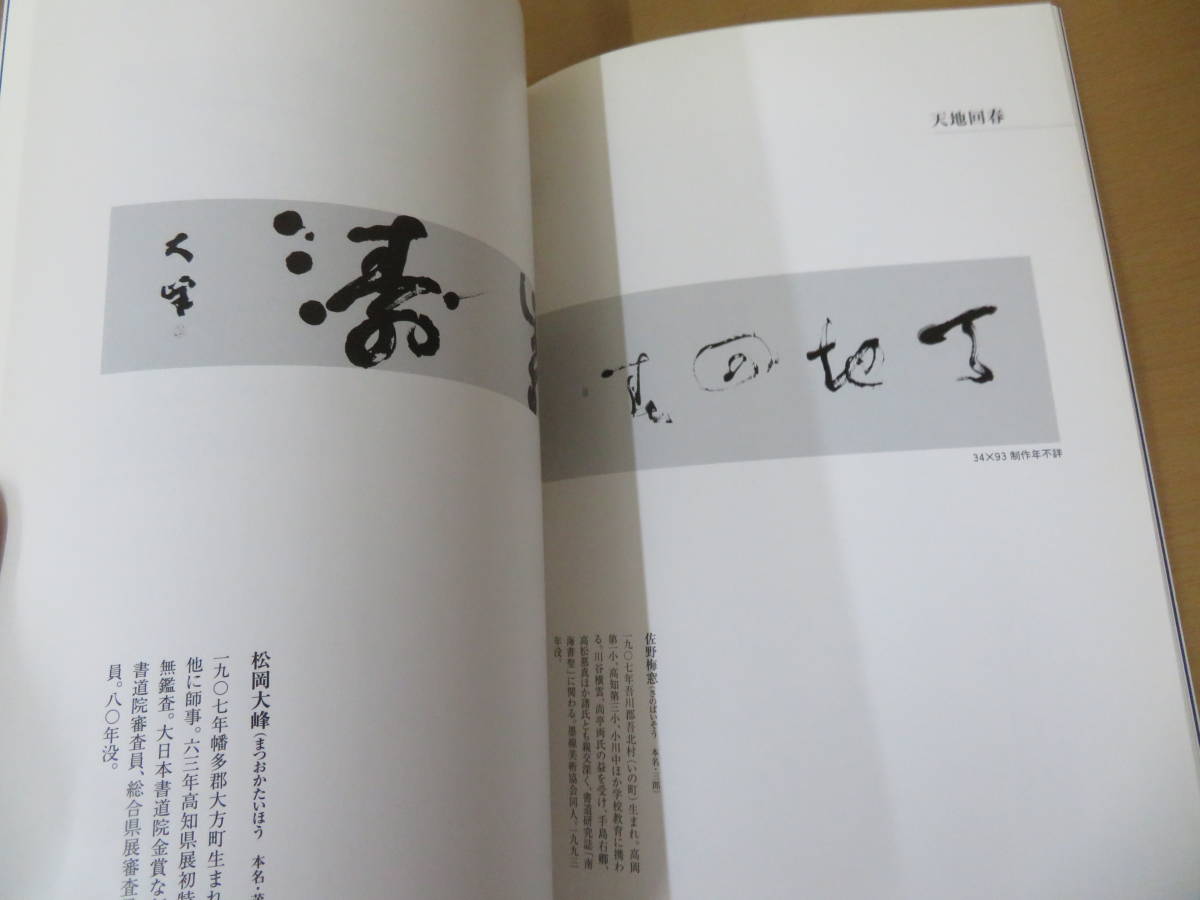 天地回春
天地回春
34×93 制作年不詳
佐野梅窓(さのばいそう 本名・三郎)
一九〇七年吾川郡吾北村(いの町)生まれ。高岡
第一小、高知第三小、小川中ほか学校教育に携わ
る。川谷横雲、尚亭両氏の益を受け、手島右卿、
高松慕真ほか諸氏とも親交深く、書道研究誌「南
海書聖」に関わる。墨線美術協会同人。一九九三
年没。
濤
大峰
松岡大峰(まつおかたいほう 本名・茂
一九〇七年幡多郡大方町生まれ
他に師事。六三年高知県展初特
無鑑査。大日本書道院金賞な
書道院審査員、総合県展審査
員。八〇年没。